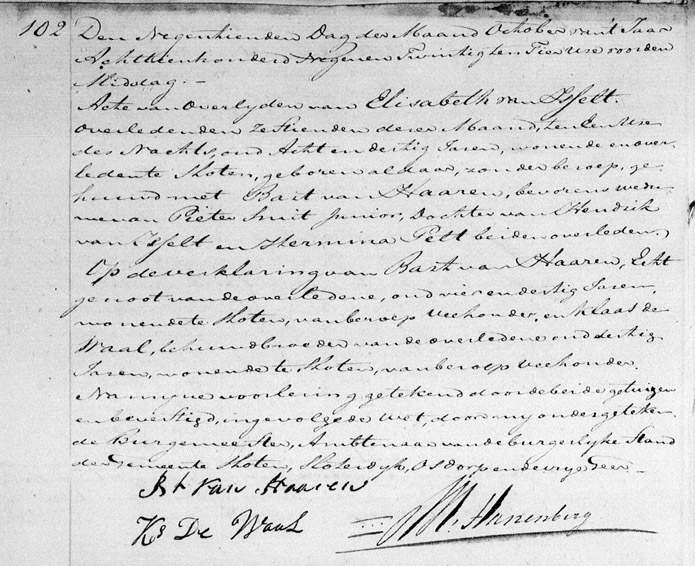 102 Den Negentienden Dag der Maand October van't Jaar
Achttienhonderd Negen en Twintig ten Tien Ure voor den
Middag. -
Acte van Overlyden van Elisabeth van Ysselt.
Overleden den Zestienden dezer Maand, ten Een Ure
des Nachts, oud Acht en dertig Jaren, wonende en over-
leden te Sloten, geboren aldaar, zonder beroep, ge-
huuwd met Bart van Haaren, bevorens wedu-
we van Pieter Smit Junior, Dochter van Hendrik
van Ysselt en Hermina Pelt beiden overleden,
Op de verklaring van Bart van Haaren, Echt-
genoot van de overledene, oud vier en dertig Jaren,
wonende te Sloten, van beroep veehouder, en Klaas de
Waal, behuwdbroeder van de overledene oud dertig
Jaren, wonende te Sloten, van beroep veehouder.
Na myne voorlezing getekend door de beide getuigen
en bevestigd, ingevolge de wet, door my ondergeteken-
de Burgemeester, Ambtenaar van de burgerlyke Stand
der Gemeente Sloten, Sloterdyk, Osdorp en de vrye Geer -
Bt van Haaren
Ks De Waal
Hanenberg